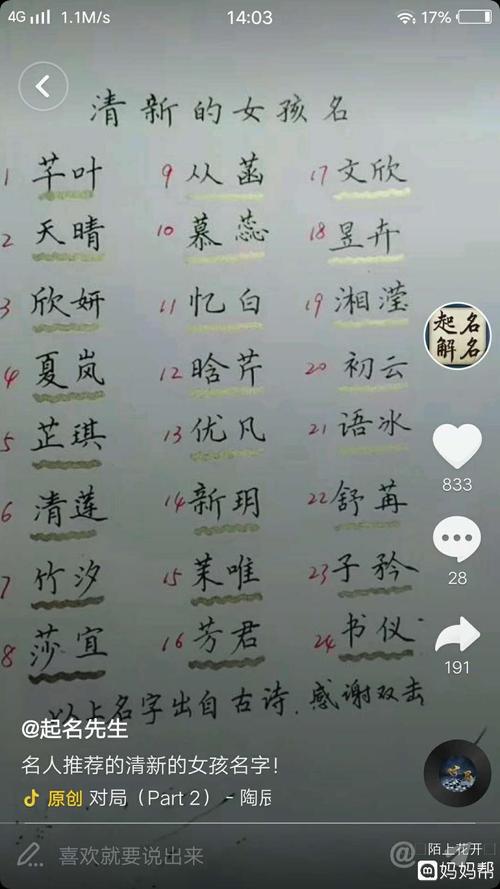 4G 1.1M/s 14:03 17%
清新的女孩名
1 芊叶 9 从菡 17 文欣
2 天晴 10 慕蕊 18 昱卉
3 欣妍 11 忆白 19 湘滢
4 夏岚 12 晗芹 20 初云
5 芷琪 13 优凡 21 语冰
6 清莲 14 新玥 22 舒苒
7 竹汐 15 茉唯 23 子矜
8 莎宜 16 芳君 24 书仪
起名
解名
833
28
191
以上名字出自古诗.感谢双击
@起名先生
名人推荐的清新的女孩名字!
原创 对局 (Part 2) - 陶辰
陌上花开
喜欢就要说出来 @
妈妈帮